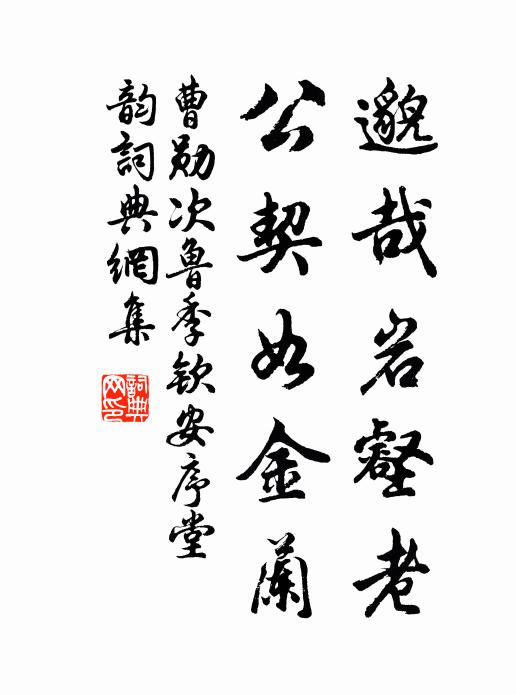 邈哉岩壑老
公契如金蘭
曹勛次魯季欽安序堂
韵詞典網集
詞典网印